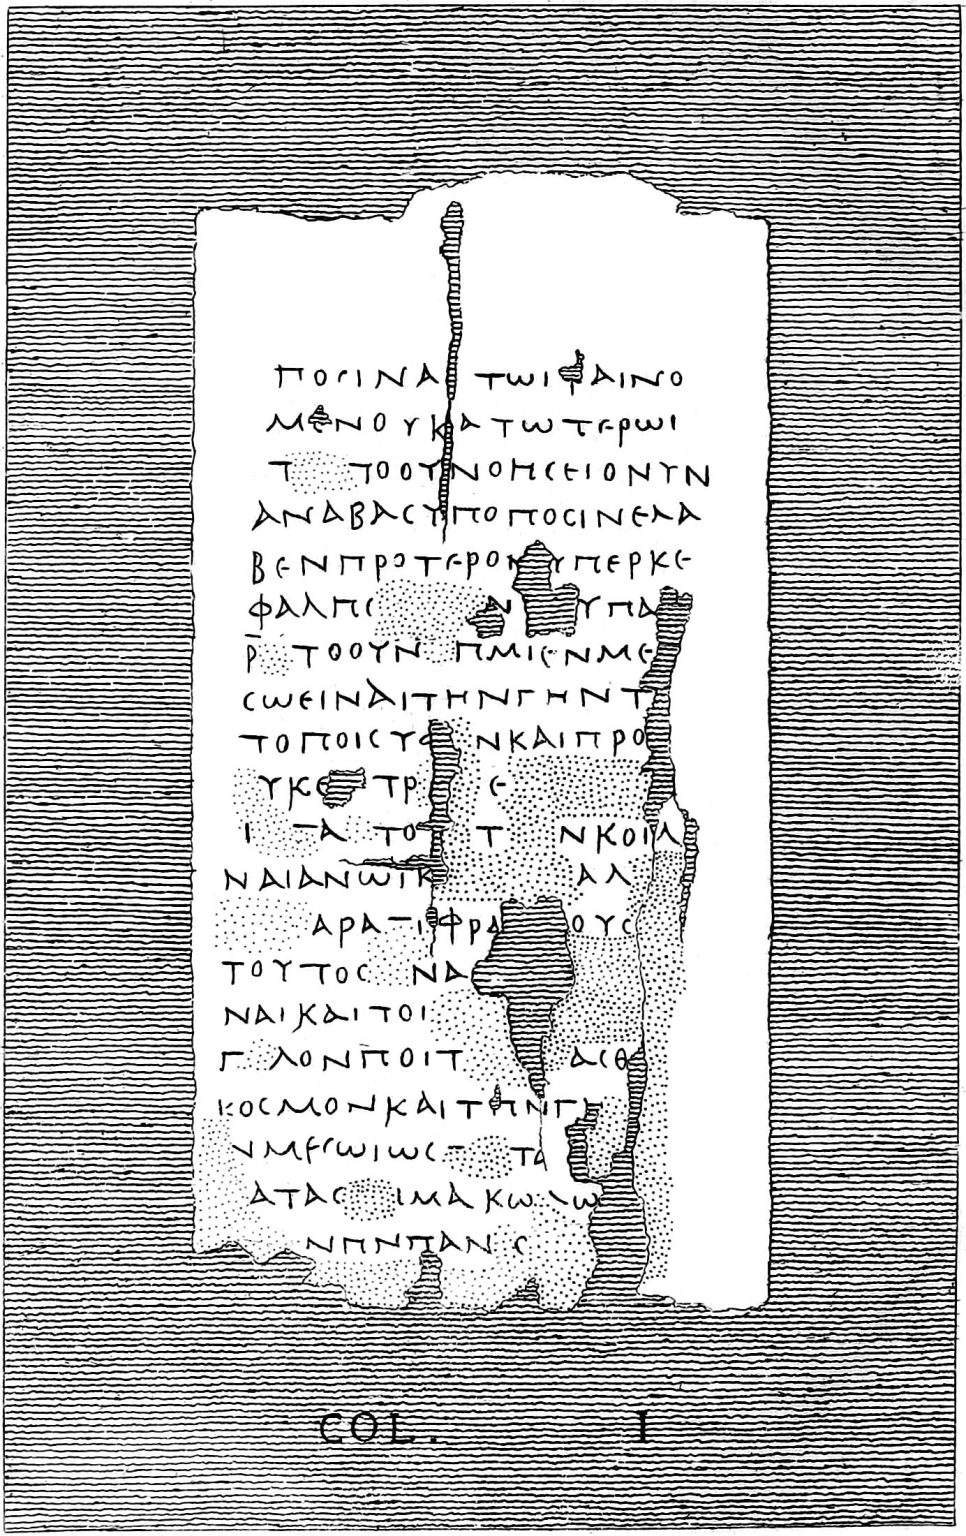 ΠΟϹΙΝΑ ΤΩΙΦΑΙΝΟ
ΜΕΝΟΥΚΑΤΩΤΕΡΩΙ
Τ ΤΟΟΥΝΟΗϹΕΙΟΝΥΝ
ΑΝΑΒΑϹΥΠΟΠΟϹΙΝΕΛΑ
ΒΕΝΠΡΟΤΕΡΟΝΥΠΕΡΚΕ
ΦΑΛΗϹ Ν ΥΠΑ
Ρ ΤΟΟΥΝ ΗΜΙΕΝΜΕ
ϹΩΕΙΝΑΙΤΗΝΓΗΝΤ
ΤΟΠΟΙϹΥϹ ΝΚΑΙΠΡΟ
ΥΚΕ ΤΡ Ε
Ι ΤΑ ΤΟ Τ ΝΚΟΙΛ
ΝΑΙΑΝΩΙΚ ΑΛ
ΑΡΑ ΙΦΡΑ ΟΥϹ
ΤΟΥΤΟϹ ΝΑ
ΝΑΙΚΑΙΤΟΙ
Γ ΛΟΝΠΟΙΤ ΑϹΘ
ΚΟϹΜΟΝΚΑΙΤΗΝΓΗ
ΝΜΕϹΩΙΩϹ ΤΟ
ΑΤΑϹ ΙΜΑΚΩ ΛΩ
ΝΗΝΠΑΝ Ϲ
COL. I